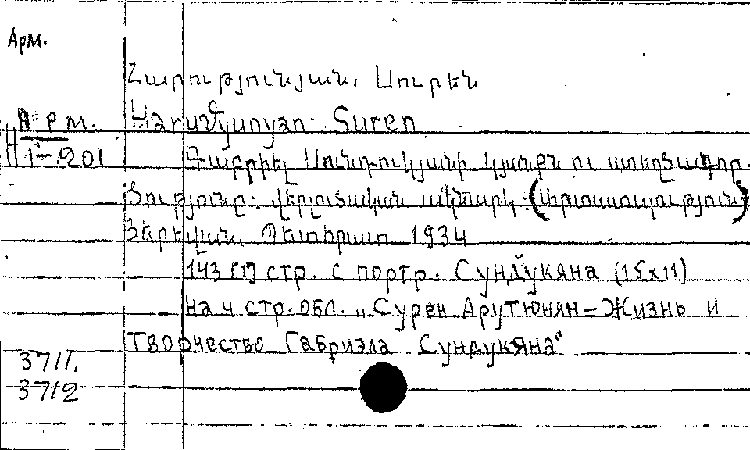 Арм.
Հարությունյան, Սուրեն
Арм. Harutyunyan Suren
1-201 Գաբրիել Սունդուկյանի կյանքն ու ստեղծագոր-
ծությունը. վերլուծական ակնարկ
Յերեվան, Պետհրատ 1934
143 [1] стр. с портр. Сундукяна (15x11)
на 4 стр. обл. „Сурен Арутюнян = Жизнь и
творчество Габриэла Сундукяна"
3711.
3712